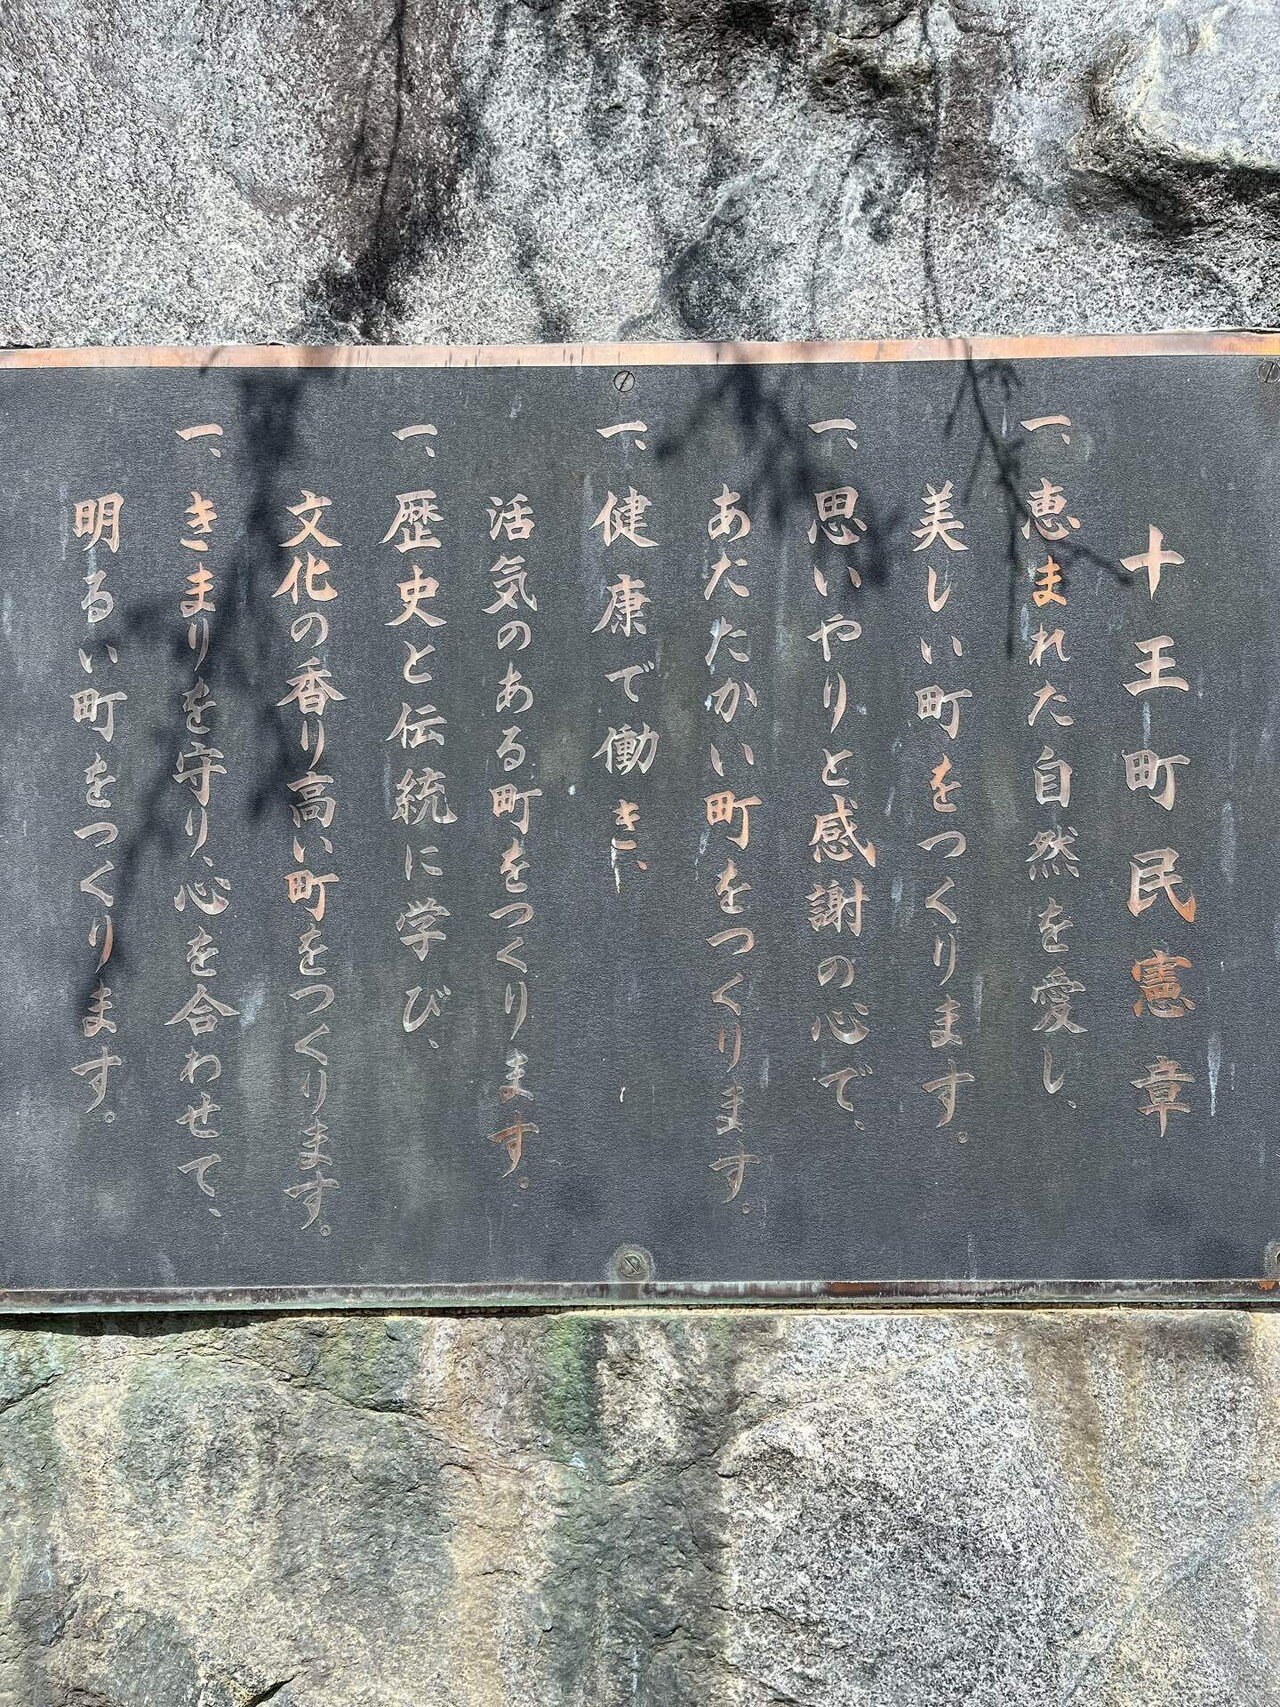 十王町民憲章
一、恵まれた自然を愛し、
美しい町をつくります。
一、思いやりと感謝の心で、
あたたかい町をつくります。
一、健康で働き、
活気のある町をつくります。
一、歴史と伝統に学び、
文化の香り高い町をつくります。
一、きまりを守り、心を合わせて、
明るい町をつくります。